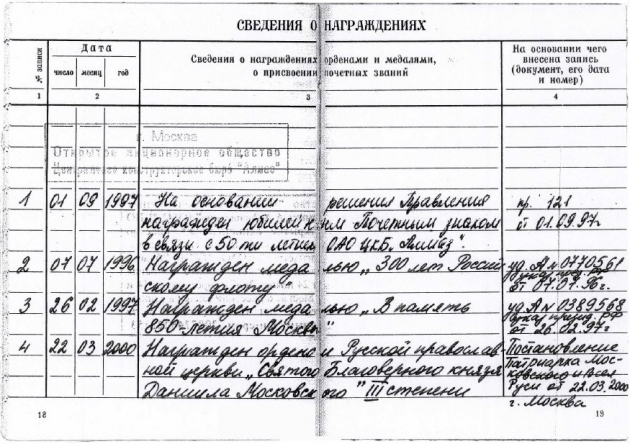 СВЕДЕНИЯ О НАГРАЖДЕНИЯХ
№ записи
Дата
число месяц год
Сведения о награждениях орденами и медалями,
о присвоении почетных званий
На основании чего
внесена запись
(документ, его дата
и номер)
1 2 3 4
г. Москва
Открытое акционерное общество
Центральное конструкторское бюро "Алмаз"
1 01 09 1997 На основании решения Правления пр. 121
награжден юбилейным Почетным знаком от 01.09.97г.
в связи с 50-ти летием ОАО ЦКБ „Алмаз".
2 07 07 1996 Награжден медалью „300 лет Россий уд. А № 0770561
скому флоту" от 07.07.96г.
3 26 02 1997 Награжден медалью „В память уд. А № 0389568
850-летия Москвы" указ през. РФ
от 26.02.97г
4 22 03 2000 Награжден орденом Русской православ Постановление
ной церкви „Святого Благоверного князя Патриарха Мос-
Даниила Московского" III степени ковского и Всея
Руси от 22.03.2000
г. Москва
18 19